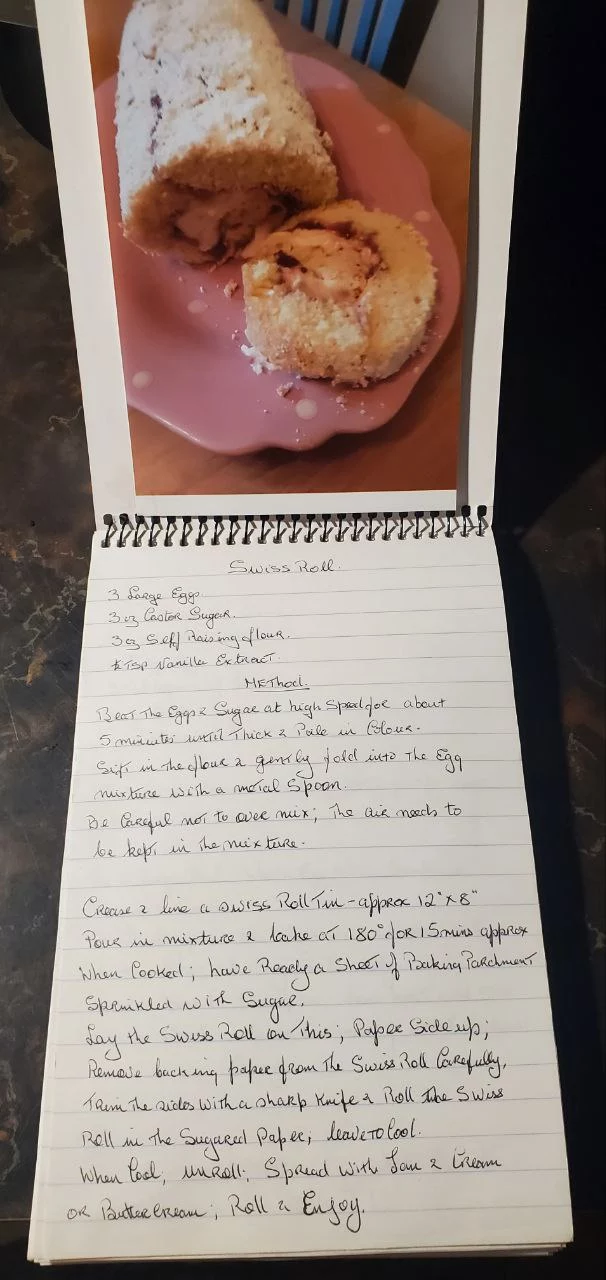 Swiss Roll.
3 Large Eggs.
3 oz Castor Sugar.
3 oz Self Raising flour.
Tsp Vanilla Extract.
Method.
Beat The Eggs & Sugar at high Speed for about
5 minutes until Thick & Pale in Colour.
Sift in the flour & gently fold into The Egg
mixture with a metal Spoon.
Be Careful not to over mix; The air needs to
be kept in the mixture.
Grease & line a Swiss Roll Tin - approx 12" x 8"
Pour in mixture & bake at 180° for 15 mins approx
When Cooked; have Ready a Sheet of Baking Parchment
Sprinkled with Sugar.
Lay the Swiss Roll on This; Paper Side up;
Remove backing paper from the Swiss Roll Carefully,
Trim the sides with a sharp Knife & Roll the Swiss
Roll in the Sugared Paper; leave to Cool.
When Cool; unroll; Spread with Jam & Cream
OR Butter Cream; Roll & Enjoy.